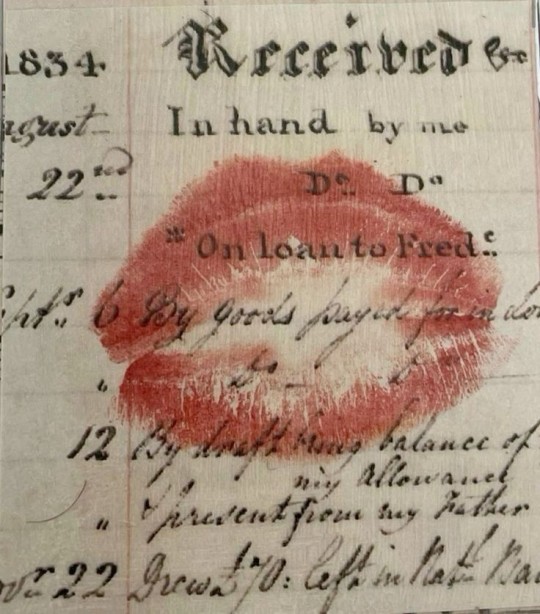 1834 Received &c
August In hand by me
22nd Do. Do
" On loan to Fredc.
Septr. 6 By goods payed for in Lon
" Do - D
12 By draft being balance of
my Allowance
" & present from my Father
Novr 22 Drew £70: left in Natl. Ban